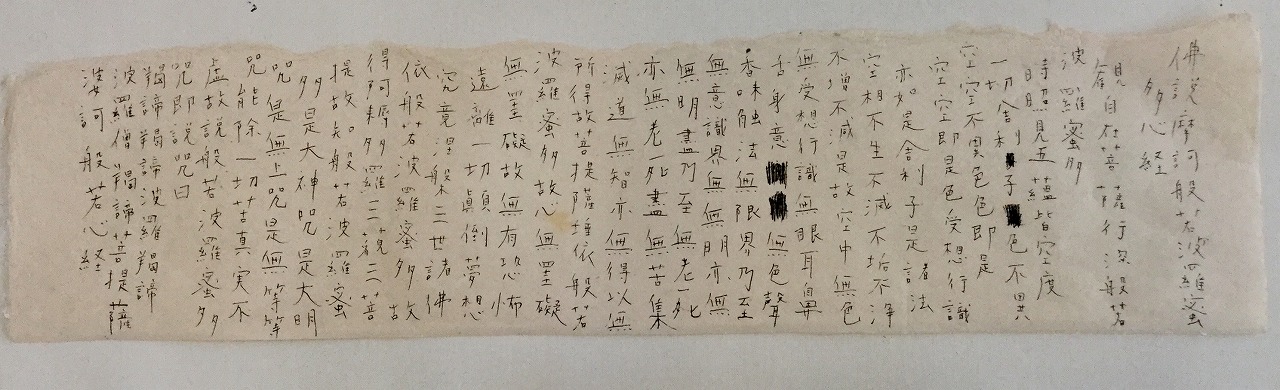 佛説摩訶般若波羅蜜
多心経
観自在菩薩行深般若
波羅蜜多
時照見五蘊皆空度
一切舎利子色不異
空空不異色色即是
空空即是色受想行識
亦如是舎利子是諸法
空相不生不滅不垢不浄
不増不減是故空中無色
無受想行識無眼耳鼻
舌身意無色聲
香味触法無限界乃至
無意識界無無明亦無
無明盡乃至無老死
亦無老死盡無苦集
滅道無智亦無得以無
所得故菩提薩埵依般若
波羅蜜多故心無罣礙
無罣礙故無有恐怖
遠離一切顛倒夢想
究竟涅槃三世諸佛
依般若波羅蜜多故
得阿耨多羅三藐三菩
提故知般若波羅蜜
多是大神咒是大明
咒是無上咒是無等等
咒能除一切苦真実不
虚故説般若波羅蜜多
咒即説咒曰
羯諦羯諦波羅羯諦
波羅僧羯諦菩提薩
婆訶般若心経